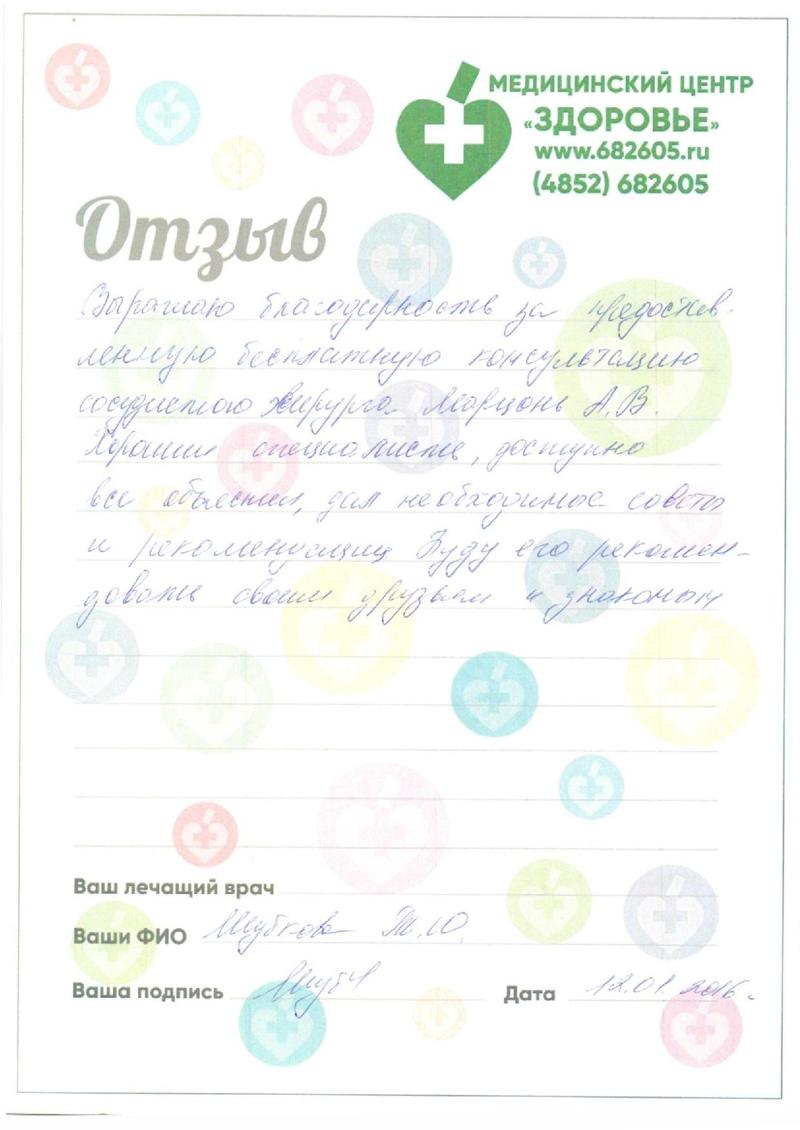 МЕДИЦИНСКИЙ ЦЕНТР
«ЗДОРОВЬЕ»
www.682605.ru
(4852) 682605
Отзыв
Выражаю благодарность за предостав-
ленную бесплатную консультацию
сосудистого хирурга А.В.
Хороший специалист, доступно
все объяснил, дал необходимые советы
и рекомендации Буду его рекомен-
довать своим друзьям и знакомым
Ваш лечащий врач
Ваши ФИО Шубкова Т.Ю.
Ваша подпись
Дата 12.01.2016г